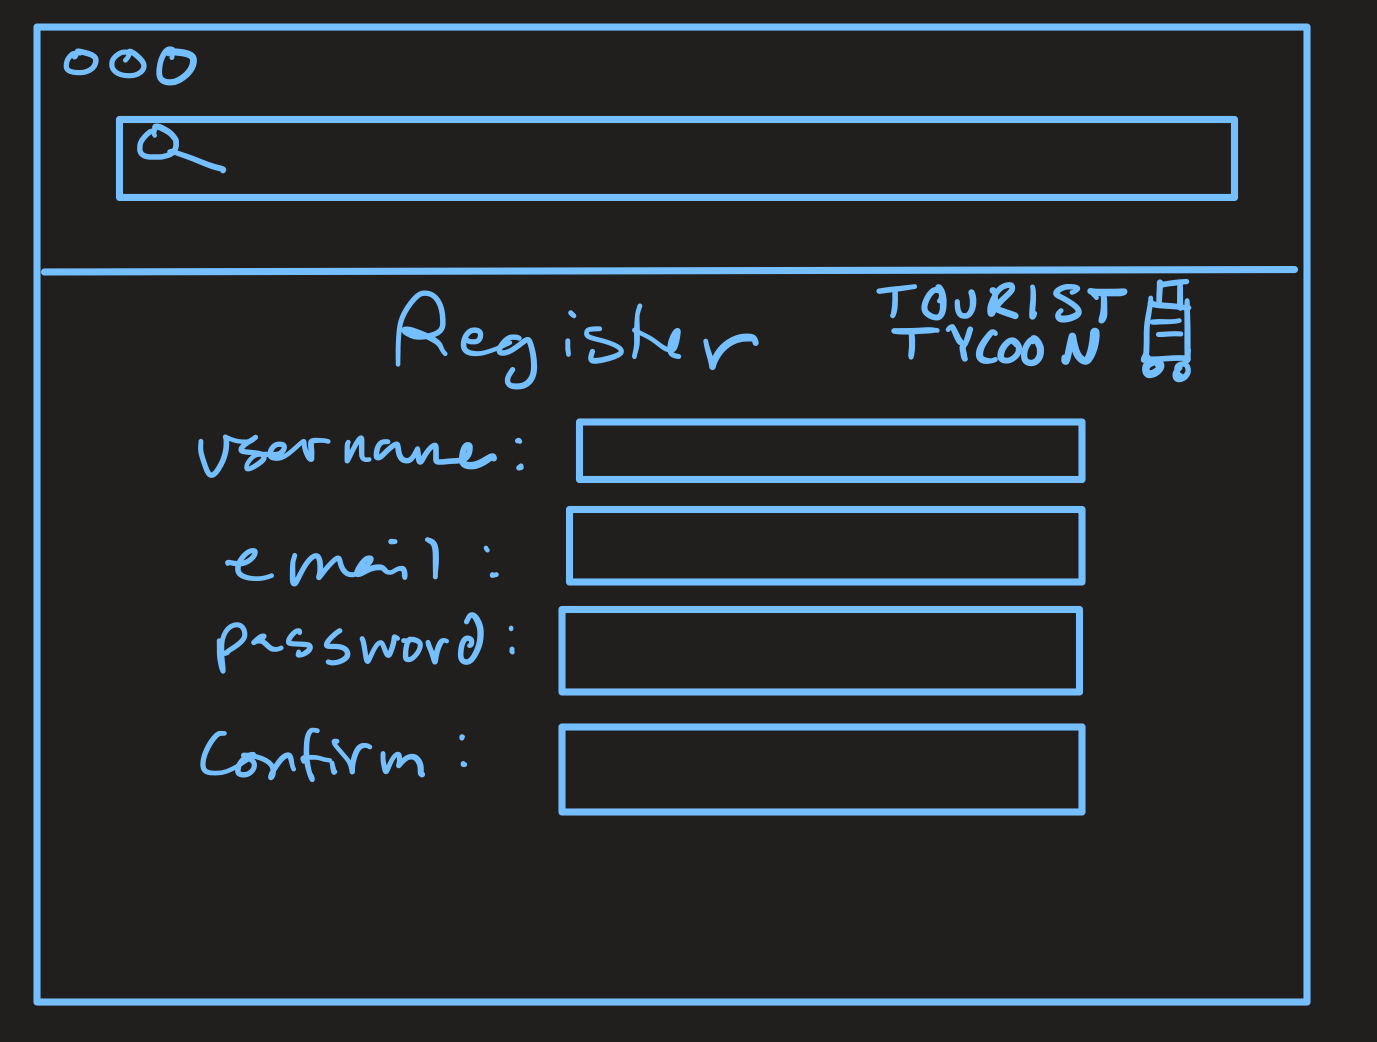 Register
TOURIST
TYCOON
username:
email:
password:
Confirm: